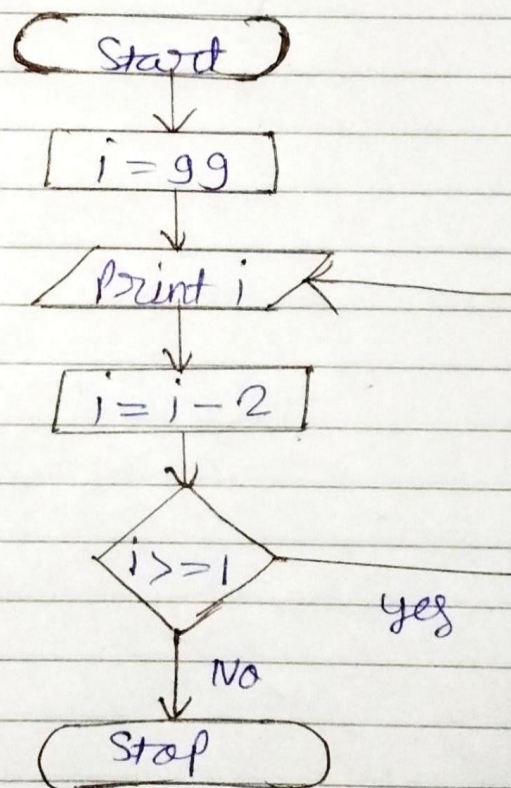 Start
i = 99
Print i
i = i - 2
i >= 1
Yes
No
Stop